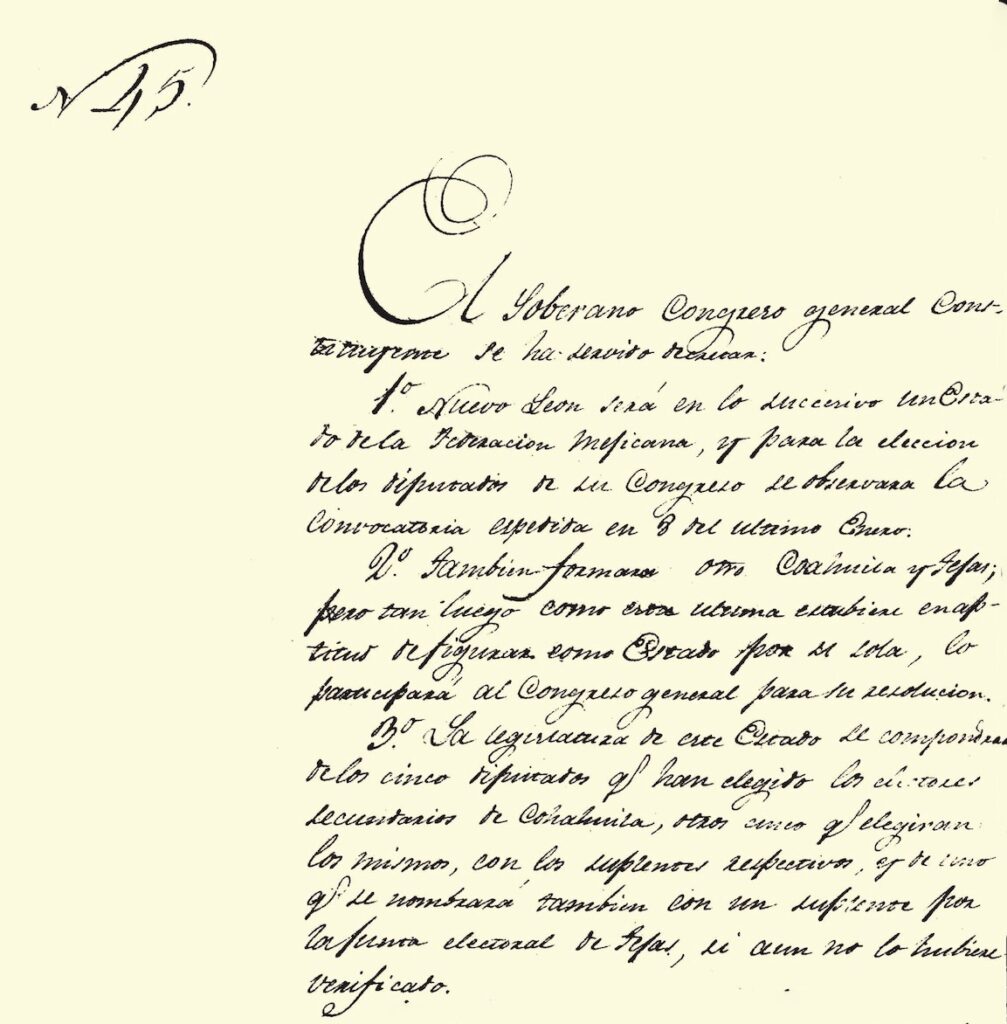 N 45.
El Soberano Congreso general Cons-
tituyente se ha servido decretar:
1.º Nuevo Leon será en lo succesivo un Esta-
do de la Federacion Mejicana, y para la eleccion
de los diputados de su Congreso se observara la
Convocatoria espedida en 8 del ultimo Enero.
2.º Tambien formara otro Coahuila y Tejas;
pero tan luego como esta ultima estubiere en ap-
titud de figurar como Estado por si sola, lo
participará al Congreso general para su resolucion.
3.º La legislatura de este Estado se compondra
de los cinco diputados q.e han elegido los electores
secundarios de Cohahuila, otros cinco q.e elegiran
los mismos, con los suplentes respectivos, y de uno
q.e se nombrará tambien con un suplente por
la junta electoral de Tejas, si aun no lo hubiere
verificado.